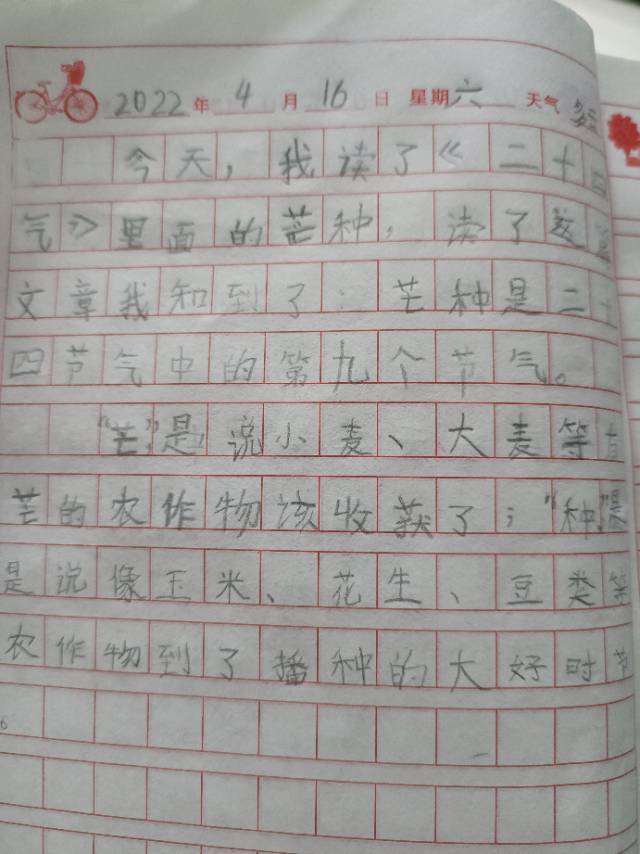 2022年4月16日 星期六 天气 多云
今天，我读了《二十四
气》里面的芒种，读了这篇
文章我知到了 芒种是二十
四节气中的第九个节气。
"芒"是说小麦、大麦等有
芒的农作物该收获了；"种"
是说像玉米、花生、豆类等
农作物到了播种的大好时节